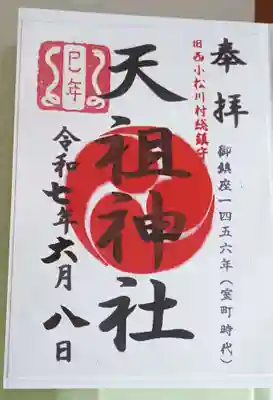 奉拝
御鎮座一四五六年(室町時代)
旧西小松川村総鎮守
天祖神社
巳年
令和七年六月八日